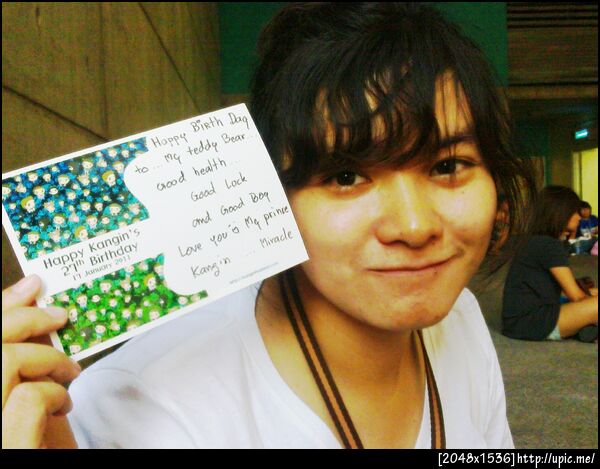 Happy Birth Day
to... My teddy Bear...
Good health...
Good Lock
and Good Boy
Love you My prince
Kangin .... Miracle
Happy Kangin's
27th Birthday
17 January 2011
[2048x1536]http://upic.me/